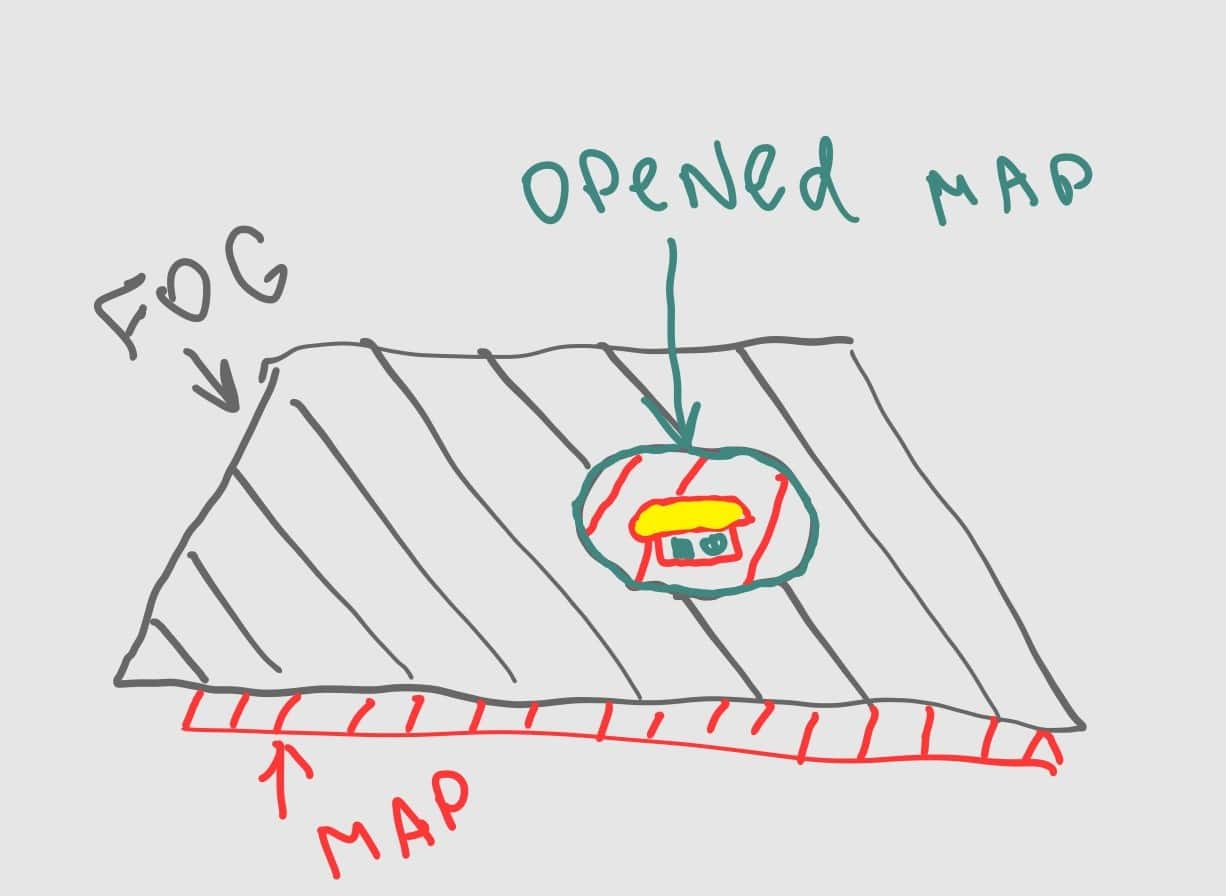 OPeNed MAP
FOG
MAP